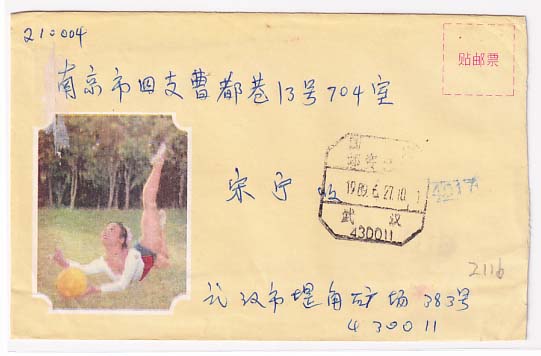 210004
贴邮票
南京市四支曹都巷13号704室
宋宁收
国
邮资已
1989.6.27.10
武汉
430011
2116
武汉市堤角矿场383号
430011